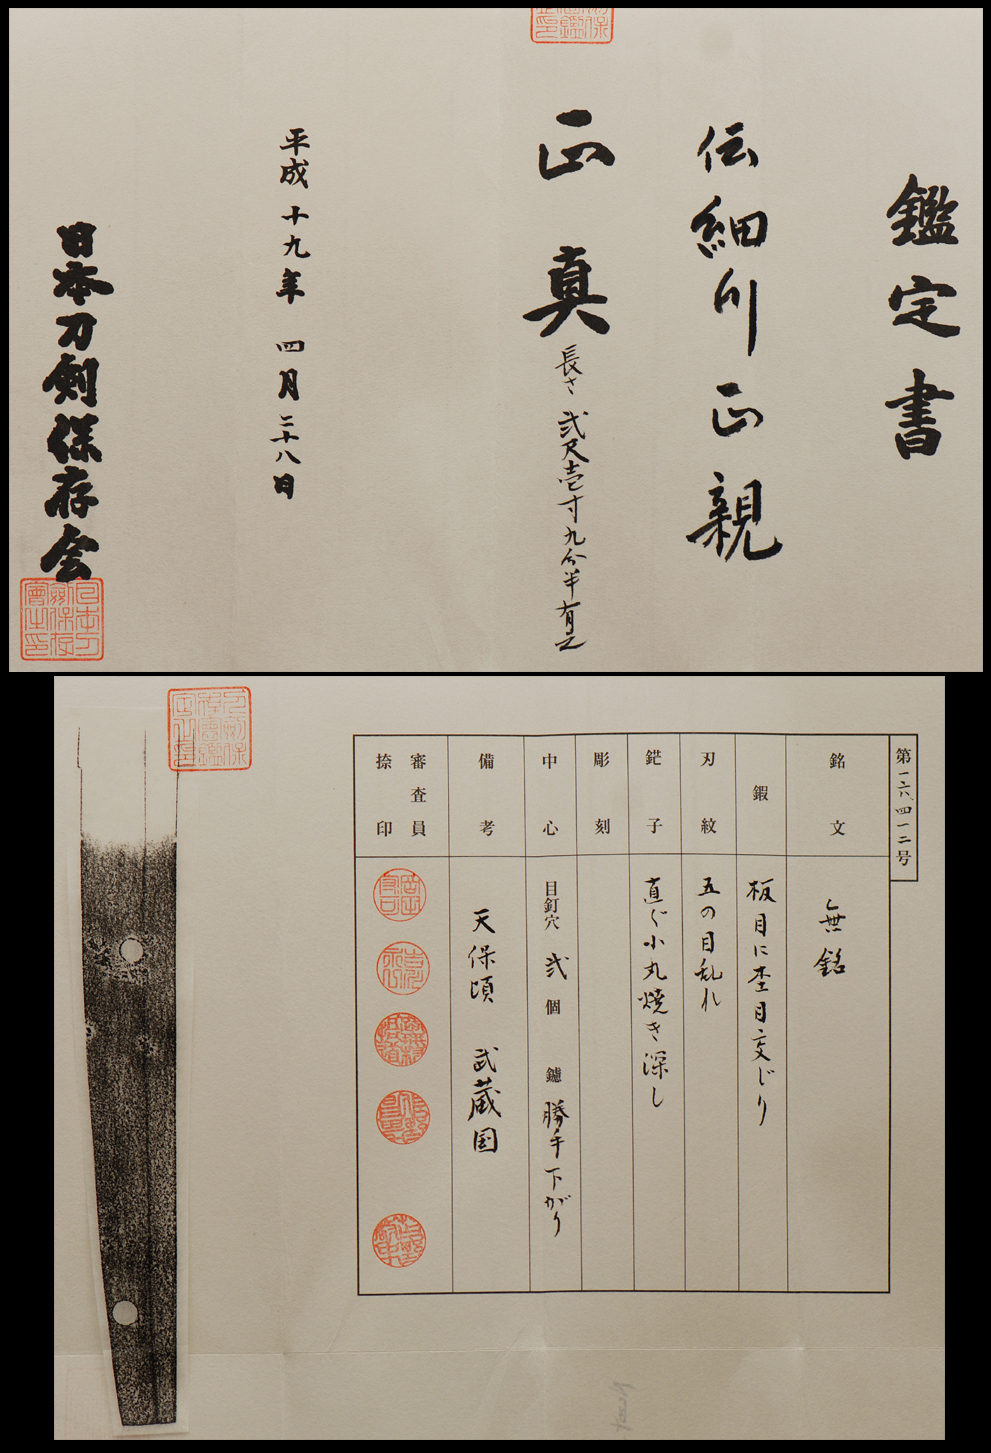 鑑定書
伝細川正親
正真
長さ弐尺壱寸九分半有之
平成十九年 四月二十八日
日本刀剣保存会
第一六八四一二号
銘文
無銘
鍜
板目に杢目交じり
刃紋
五の目乱れ
鋩子
直ぐ小丸焼き深し
彫刻
中心
目釘穴 弐個 鑢 勝手下がり
備考
天保頃 武蔵国
審査員
捺印